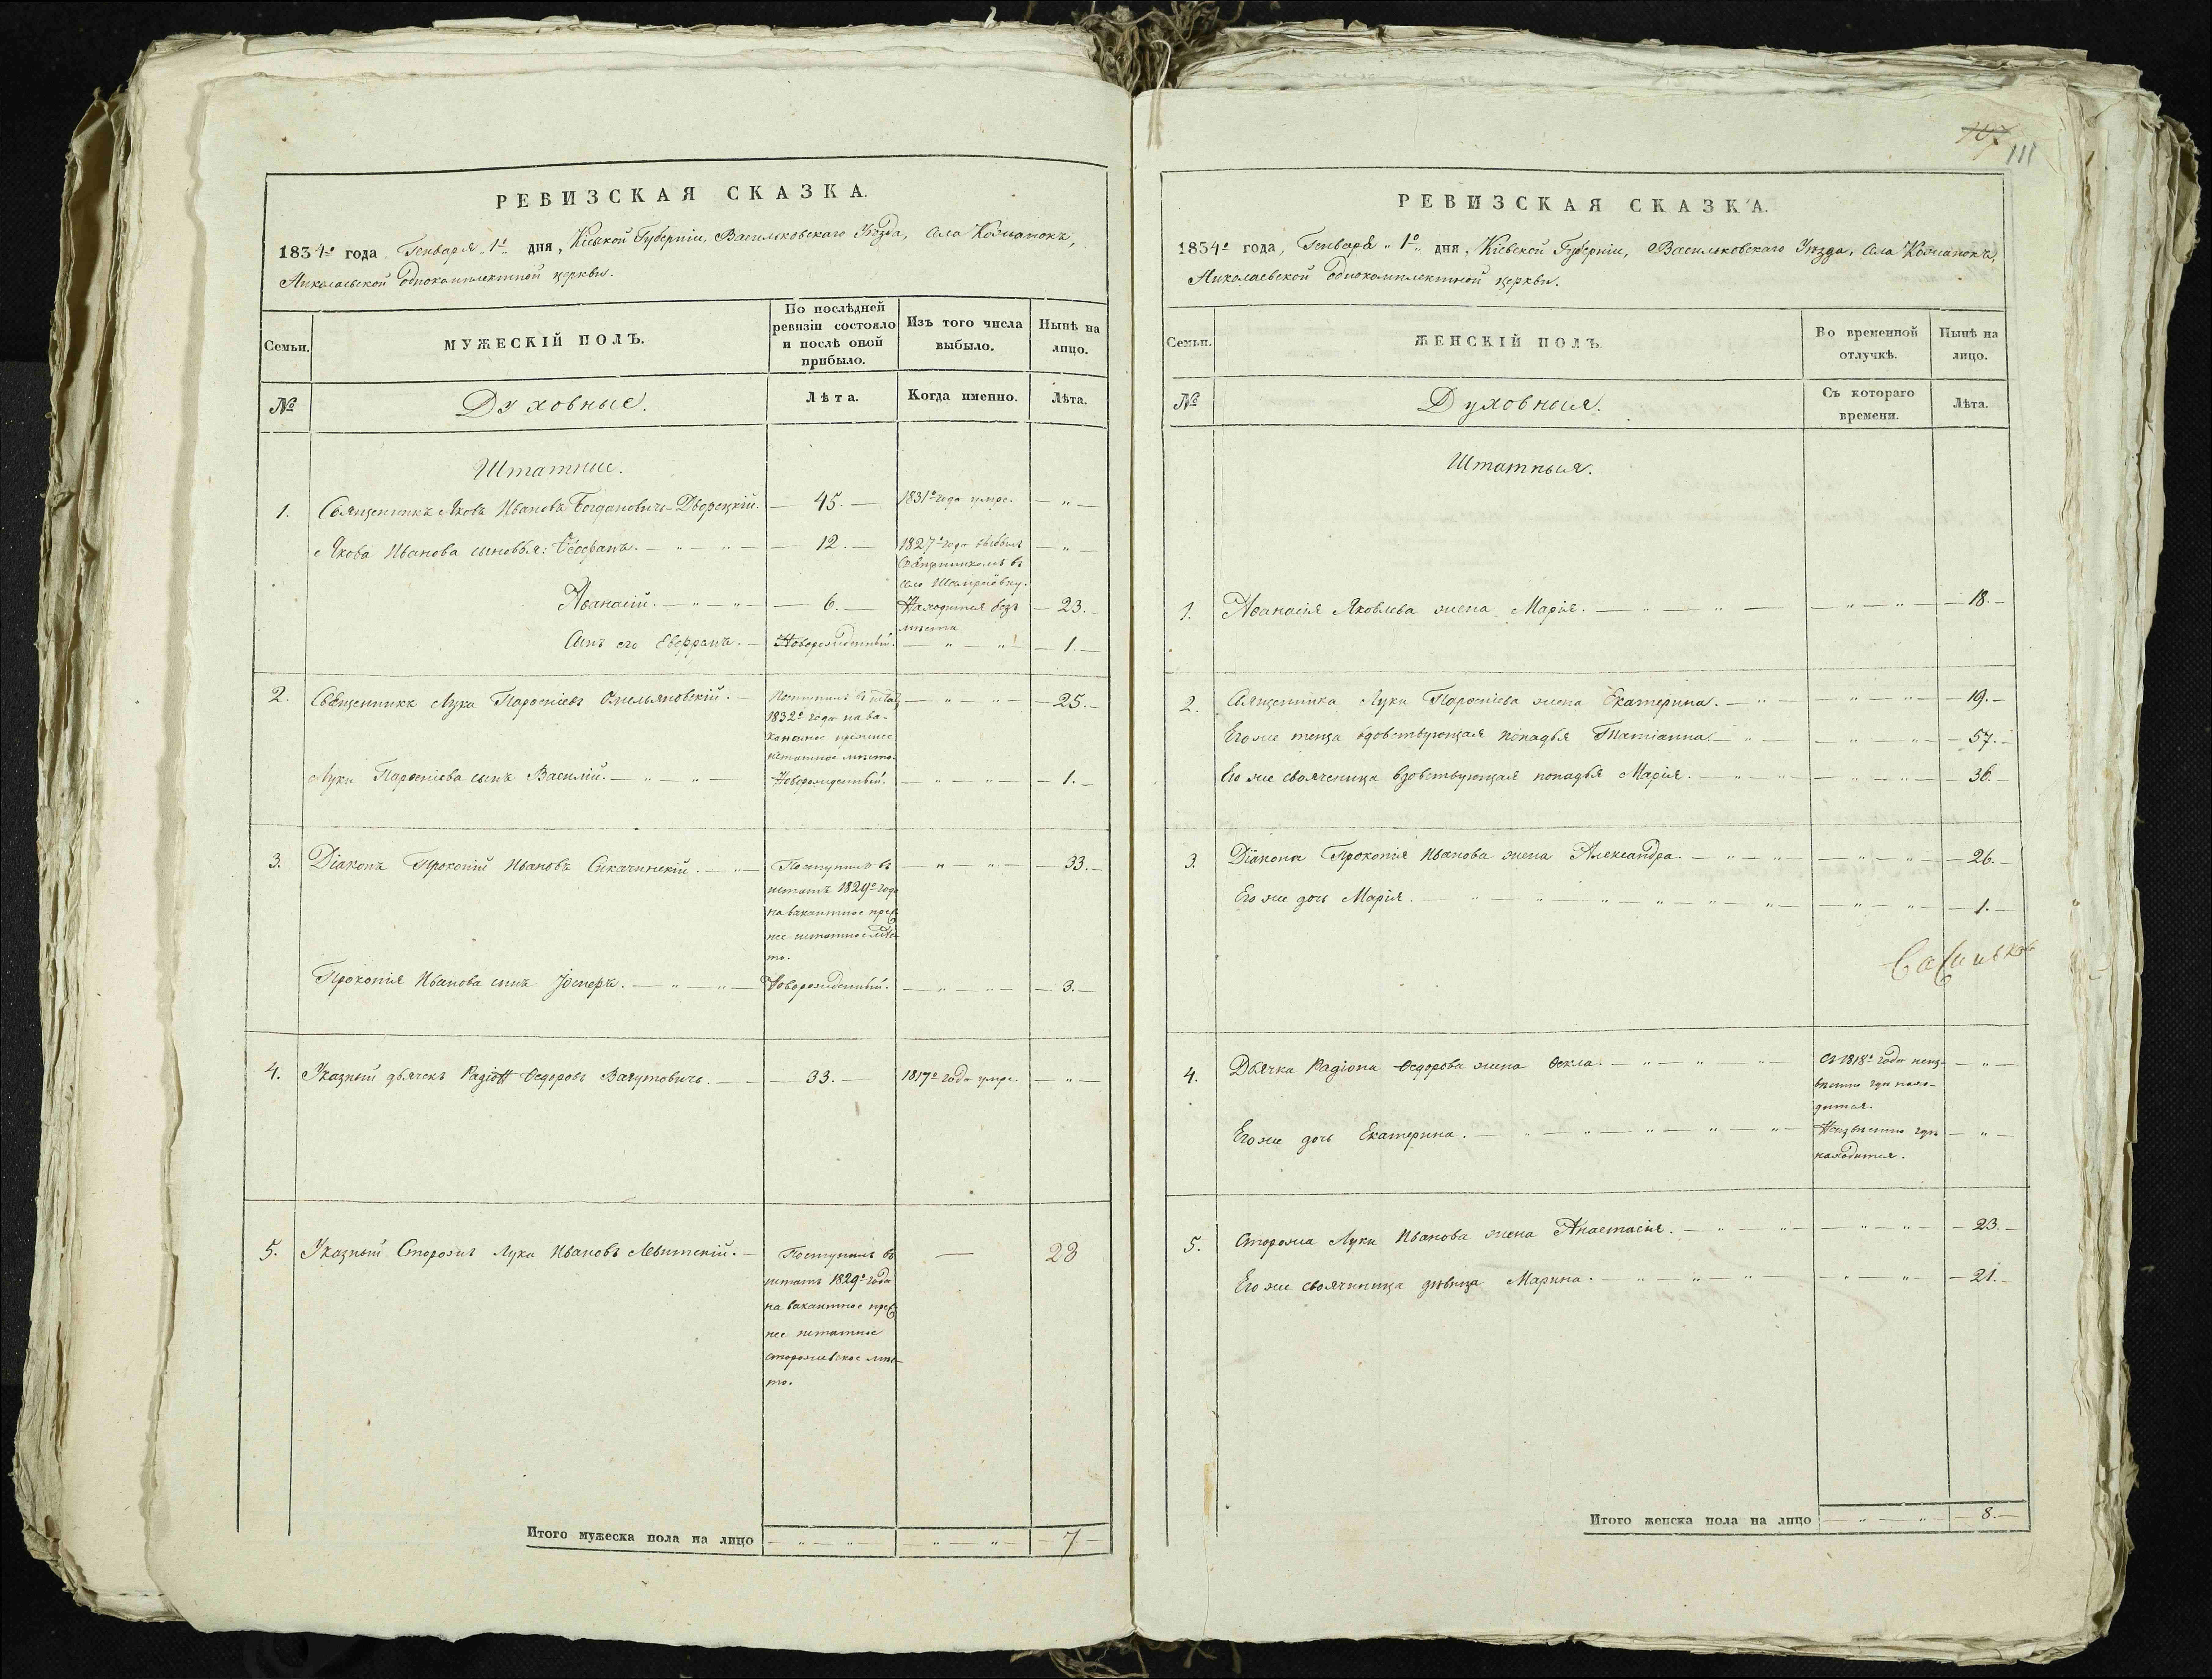 РЕВИЗСКАЯ СКАЗКА.
1834го года Генваря „1го„ дня, Кіевской Губерніи, Васильковскаго Уѣзда, села Кожанокъ,
Николаевской однокомплектной церкви.
Семьи.
МУЖЕСКІЙ ПОЛЪ.
По послѣдней
ревизіи состояло
и послѣ оной
прибыло.
Изъ того числа
выбыло.
Нынѣ на
лицо.
№
Духовные.
Лѣта.
Когда именно.
Лѣта.
Штатные.
1. Священникъ Яковъ Ивановъ Богдановичъ-Дворецкій. — 45. — 1831го года умре. — „ —
Якова Иванова сыновья: Ѳеофанъ. — „ — „ — 12. — 1827го года выбылъ — „ —
Священникомъ въ
село
Аѳанасій. — „ — „ — 6. — Находится безъ — 23. —
мѣста
Сынъ его — Новорожденный. — „ — „ — 1. —
2. Священникъ Лука Парѳеніевъ Омельяновскій. — Поступилъ въ штатъ — „ — „ — 25. —
1832го года на ва-
кантное прежнее
штатное мѣсто.
Луки Парѳеніева сынъ Василій. — „ — „ — Новорожденный. — „ — „ — 1. —
3. Діаконъ Прокопій Ивановъ Сикачинскій. — „ — Поступилъ въ — „ — „ — 33. —
штатъ 1829го года
на вакантное преж
нее штатное мѣс
то.
Прокопія Иванова сынъ Іосифъ. — „ — „ — Новорожденный. — „ — „ — 3. —
4. Указный дьячекъ Ѳедоровъ — 33. — 1817го года умре. — „ —
5. Указный Сторожъ Лука Ивановъ Левитскій. — Поступилъ въ — 23
штатъ 1829го года
на вакантное преж
нее штатное
сторожевское мѣс-
то.
Итого мужеска пола на лицо — „ — „ — — „ — „ — — 7 —
107
111
РЕВИЗСКАЯ СКАЗКА.
1834го года, Генваря „1го„ дня, Кіевской Губерніи, Васильковскаго Уѣзда, села Кожанокъ,
Николаевской однокомплектной церкви.
Семьи.
ЖЕНСКІЙ ПОЛЪ.
Во временной
отлучкѣ.
Нынѣ на
лицо.
№
Духовныя.
Съ котораго
времени.
Лѣта.
Штатныя.
1. Аѳанасія Яковлева жена Марія. — „ — „ — — „ — „ — — 18. —
2. Священника Луки Парѳеніева жена Екатерина. — „ — — „ — „ — — 19. —
Егоже теща вдовствующая попадья Татіанна. — „ — — „ — „ — — 57. —
Его же своячница вдовствующая попадья Марія. — „ — „ — — „ — „ — — 36. —
3. Діакона Прокопія Иванова жена Александра. — „ — „ — — „ — „ — — 26. —
Егоже дочь Марія. — „ — „ — „ — „ — — „ — „ — — 1. —
4. Дьячка Радіона Ѳедорова жена Ѳекла. — „ — „ — Съ 1818го года неиз- — „ —
вѣстно гдѣ нахо-
дится.
Егоже дочь Екатерина. — „ — „ — „ — „ — Неизвѣстно гдѣ — „ —
находится.
5. Сторожа Луки Иванова жена Анастасія. — „ — „ — — „ — „ — — 23. —
Его же своячиница дѣвица Марина. — „ — „ — „ — „ — „ — — 21. —
Итого женска пола на лицо — „ — „ — — 8. —